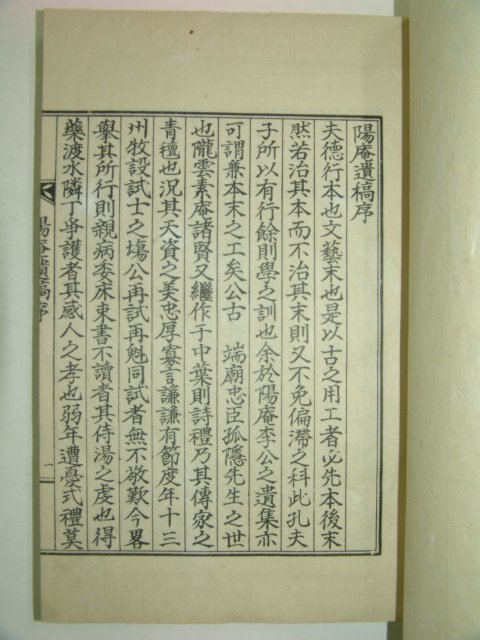 陽庵遺稿序
夫德行本也文藝末也是以古之用工者必先本後末
然若治其本而不治其末則又不免偏滯之科此孔夫
子所以有行餘則學之訓也余於陽庵李公之遺集亦
可謂兼本末之工矣公古　端廟忠臣孤隱先生之世
也隴雲素庵諸賢又繼作于中葉則詩禮乃其傳家之
青氊也況其天資之美忠厚寡言謙謙有節度年十三
州牧設試士之塲公再試再魁同試者無不敬歎今畧
擧其所行則親病委床束書不讀者其侍湯之虔也得
藥渡水隣丁爭護者其感人之孝也弱年遭憂式禮莫
陽庵遺稿序
一